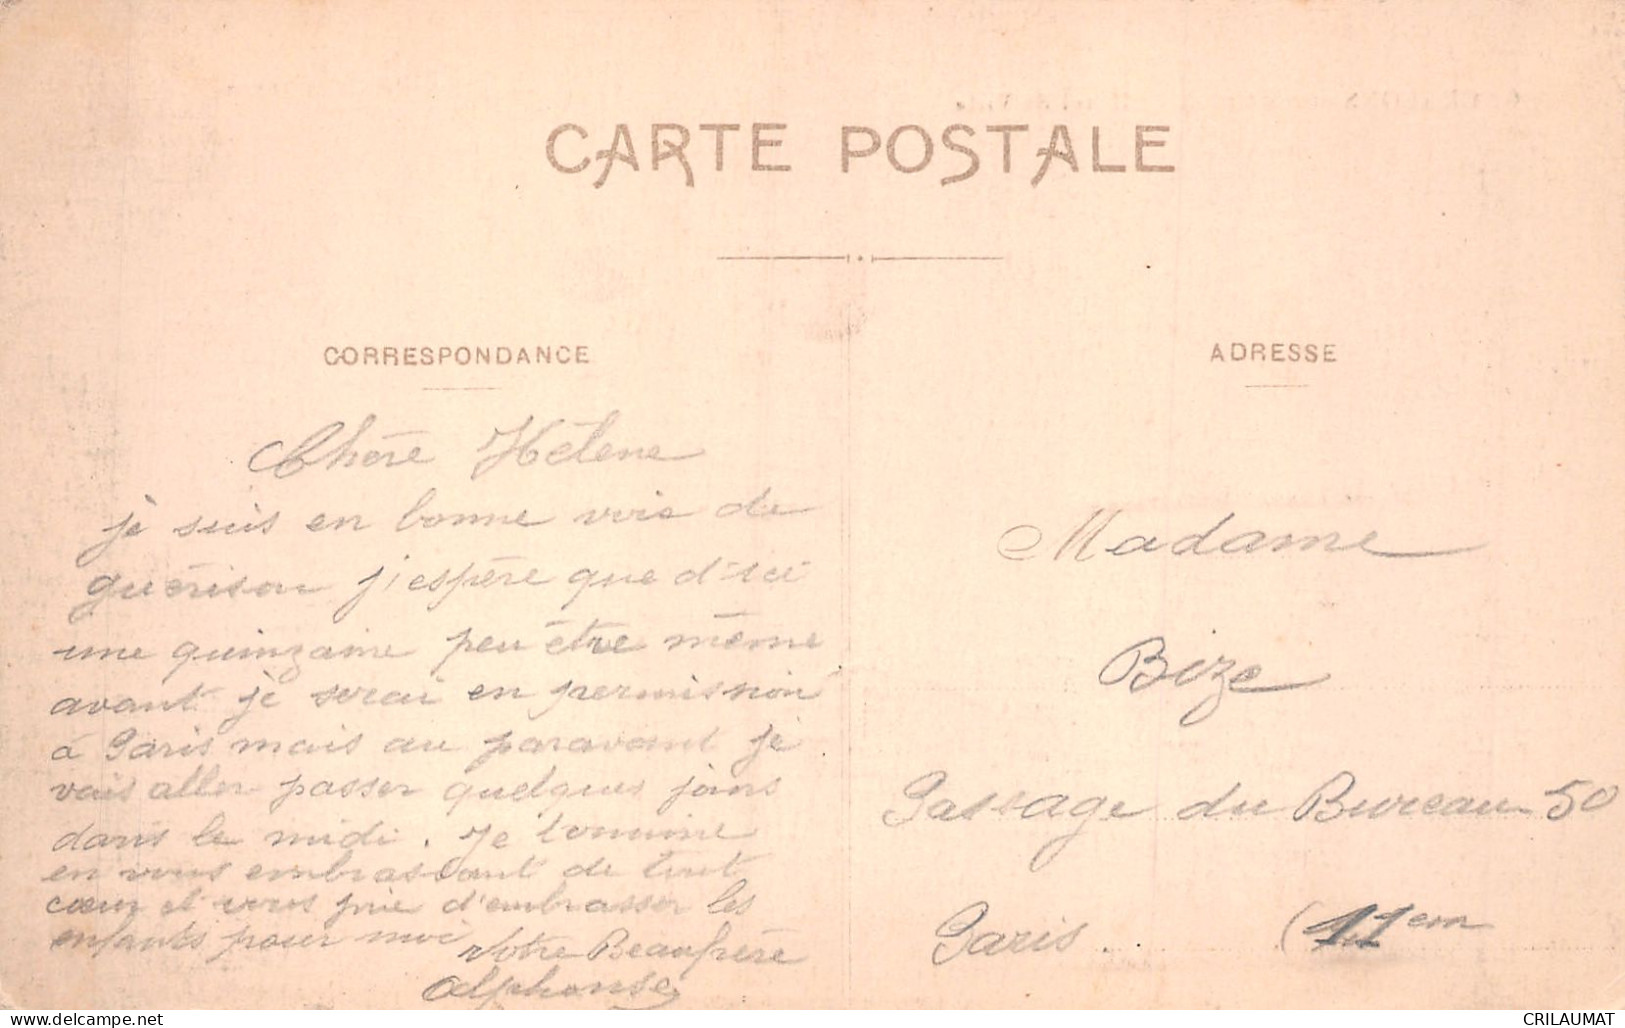 CARTE POSTALE
CORRESPONDANCE
Chère Hélène
je suis en bonne voie de
guérison j'espère que d'ici
une quinzaine peu être même
avant je serai en permission
à Paris mais au paravant je
vais aller passer quelques jours
dans le midi. Je termine
en vous embrassant de tout
cœur et vous prie d'embrasser les
enfants pour moi
Votre Beaufrère
Alphonse
ADRESSE
Madame
Bize
Passage du Bureau 50
Paris. (11em
CRILAUMAT